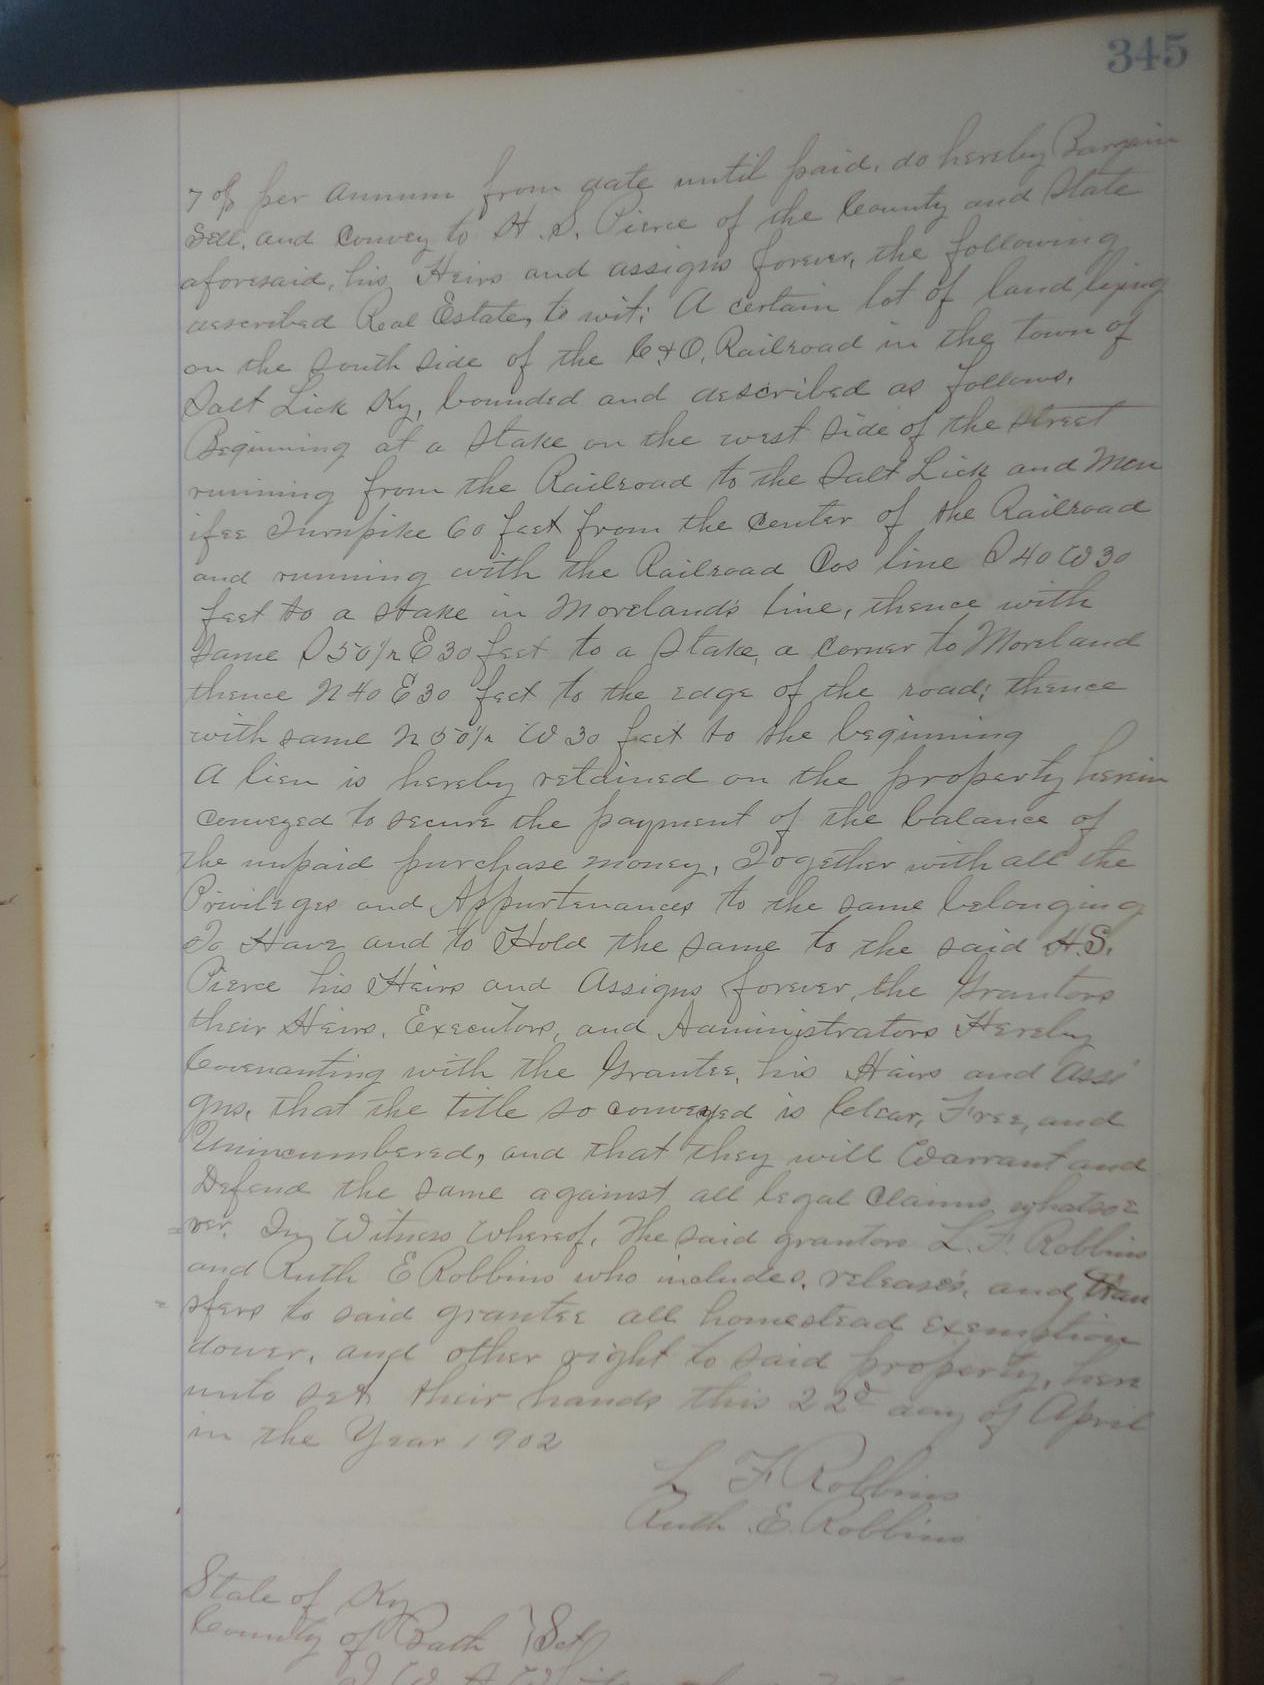 345
7 % per annum from date until paid, do hereby Bargain
Sell, and Convey to H. S. Pierce of the County and State
aforesaid, his Heirs and assigns forever, the following
described Real Estate, to wit: A certain lot of land lying
on the South side of the C & O, Railroad in the town of
Salt Lick Ky, bounded and described as follows.
Beginning at a stake on the west side of the street
running from the Railroad to the Salt Lick and Men
ifee Turnpike 60 feet from the center of the Railroad
and running with the Railroad Cos line S 40 W 30
feet to a stake in Moreland's line, thence with
same S 50 1/2 E 30 feet to a stake, a corner to Moreland
thence N 40 E 30 feet to the edge of the road; thence
with same N 50 1/2 W 30 feet to the beginning
A lien is hereby retained on the property herein
conveyed to secure the payment of the balance of
the unpaid purchase money, Together with all the
Privileges and Appurtenances to the same belonging
To Have and to Hold the same to the said H. S.
Pierce his Heirs and Assigns forever, the Grantors
their Heirs, Executors, and Administrators Hereby
Covenanting with the Grantee, his Hairs and Assi
gns, that the title so conveyed is Clear, Free, and
Unincumbered, and that they will Warrant and
Defend the same against all legal Claims whatsoe
=ver. In Witness Whereof, the said grantors L. F. Robbins
and Ruth E Robbins who includes, releases, and tran
=sfers to said grantee all homestead exemption
dower, and other right to said property, here
unto set their hands this 22d day of April
in the Year 1902
L F Robbins
Ruth E. Robbins
State of Ky
County of Bath } Sct
I W A